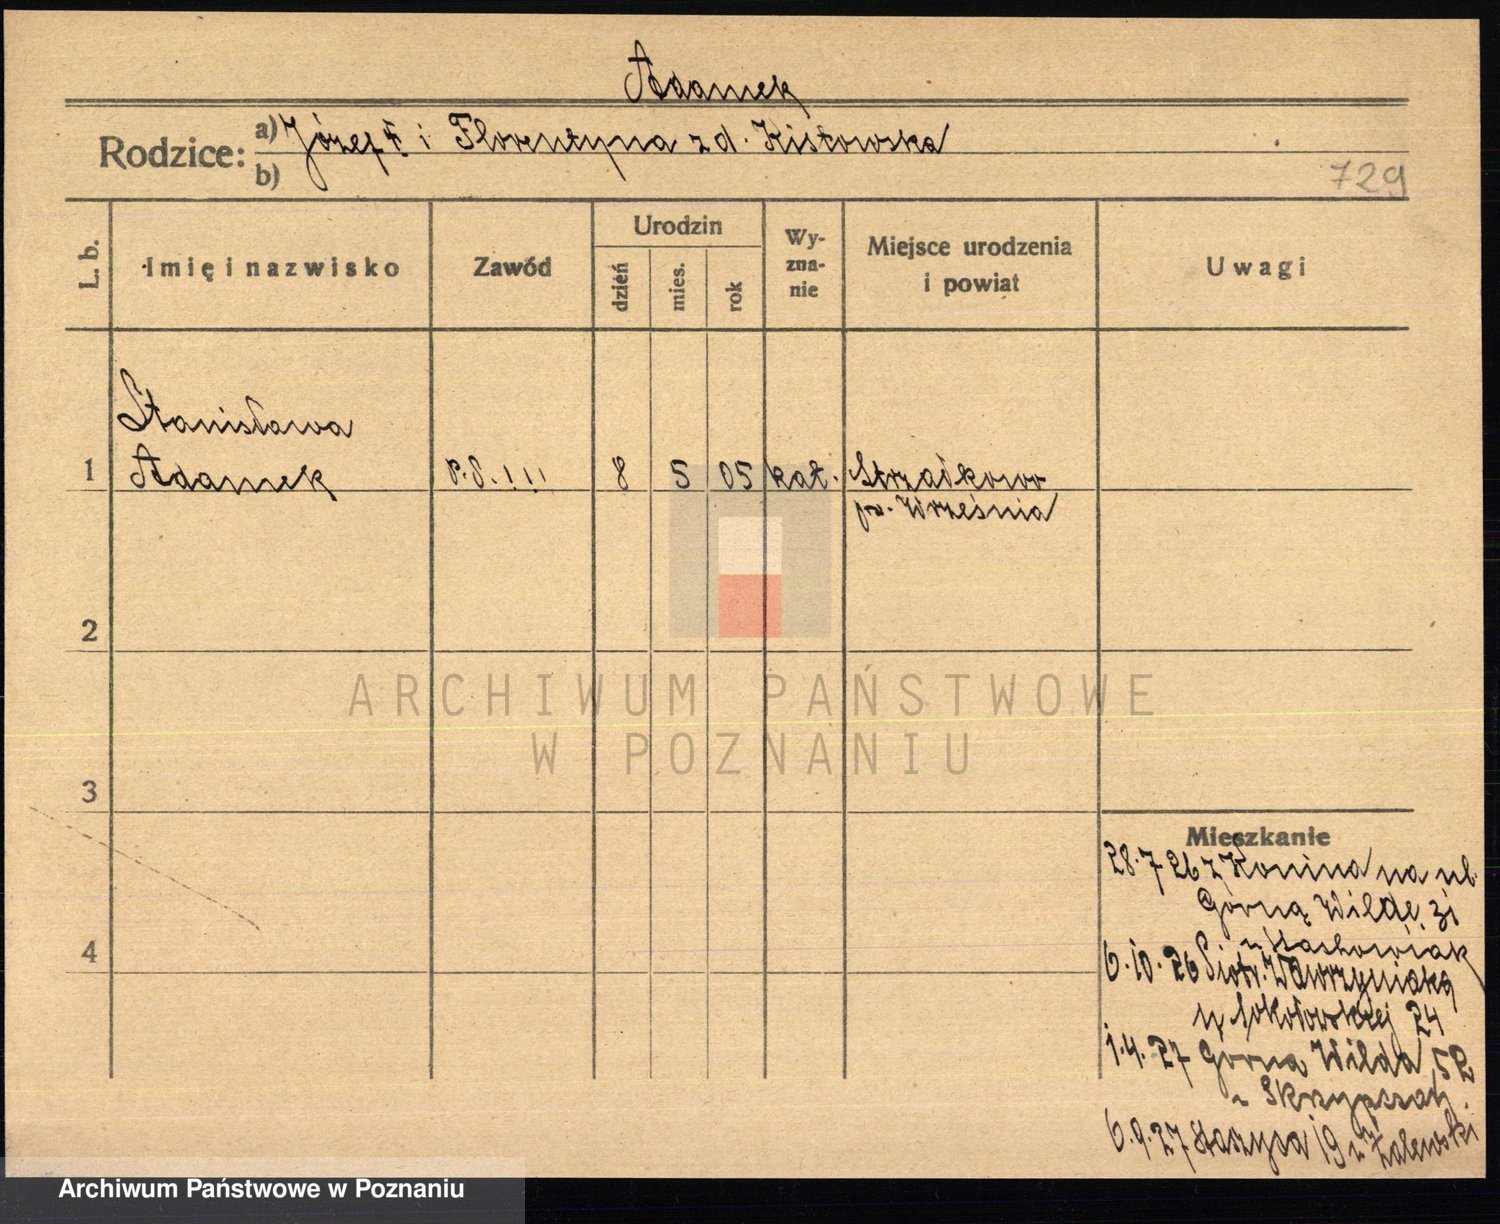 Adamek
Rodzice:
a) Józef † i Florentyna z d. Kistowska
b)
729
L. b.
Imię i nazwisko
Zawód
Urodzin
dzień
mies.
rok
Wy-
zna-
nie
Miejsce urodzenia
i powiat
Uwagi
Stanisława
1 Adamek P.P. ! ! ! 8 5 05 kat. Strzałkowo
pow. Września
2
3
4
ARCHIWUM PAŃSTWOWE
W POZNANIU
Mieszkanie
28.7 26 z Konina na ul.
Górną Wildę 31
u Stachowiak
6.10.26 Piotr. Wawrzyniaka
24
1.4.27 Górna Wilda 52
u
6.9.27 Staszyca 19 u Zalewski
Archiwum Państwowe w Poznaniu